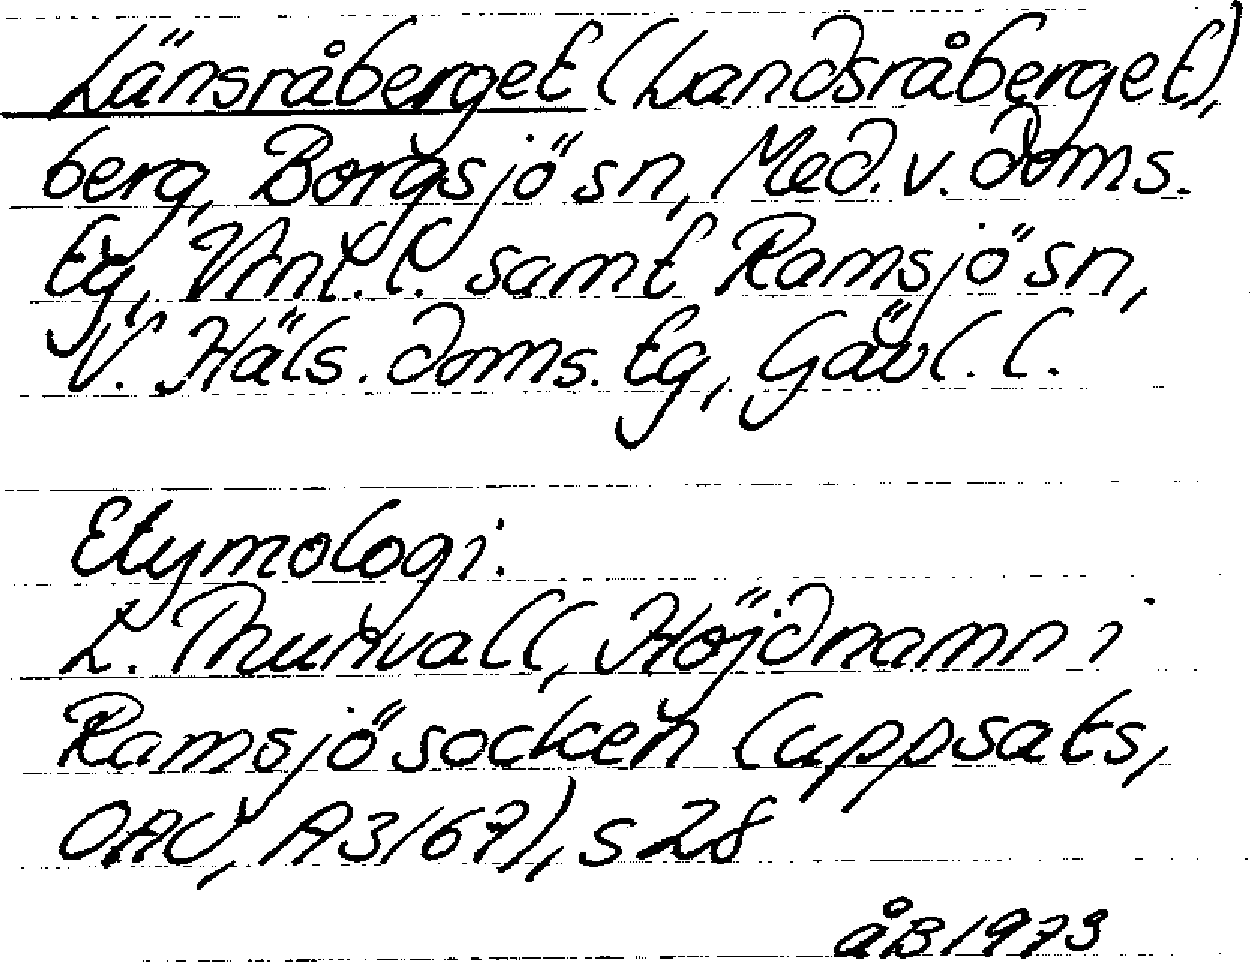 Länsråberget (Landsråberget),
berg, Borgsjö sn, Med. v. doms.
tg, Vrnl. l. samt Ramsjö sn,
V. Häls. doms. tg, Gävl. l.
Etymologi:
L. Thunvall, Höjdnamn i
Ramsjö socken (uppsats,
OAU, A3/67), s 28
åB 1973